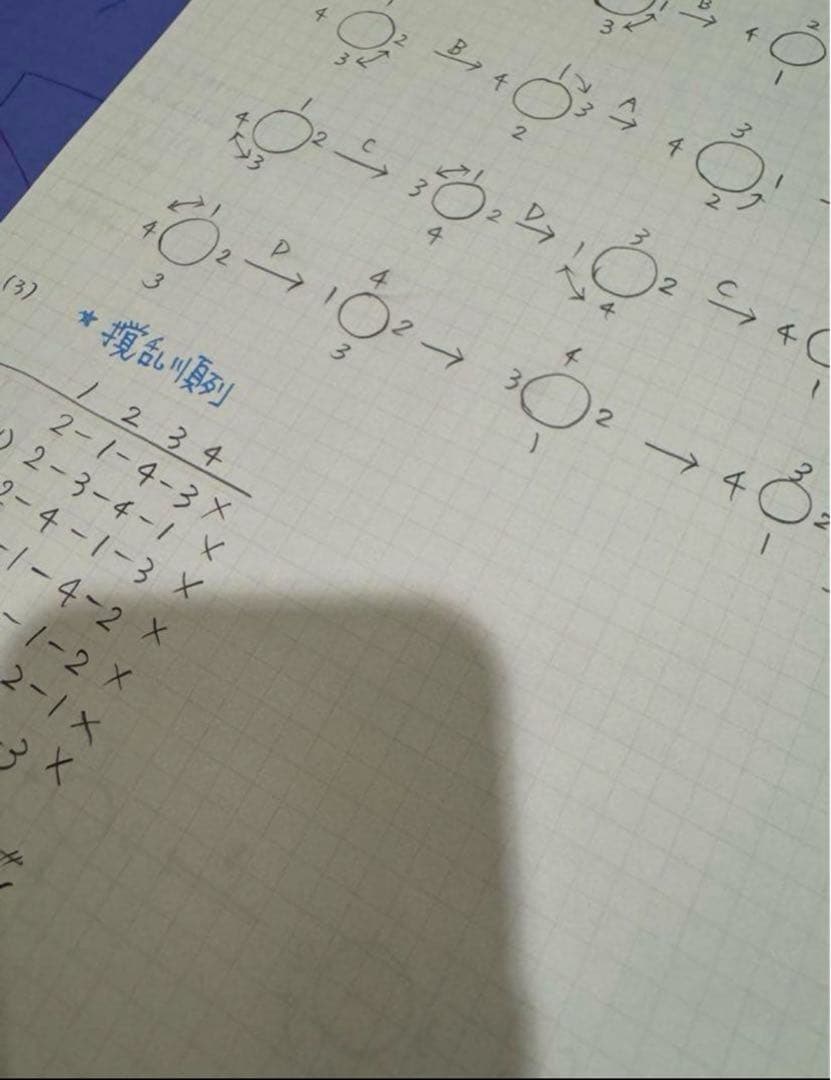 1 B
3 4 2
1
1
4 2 B 4 1 3 A 4 3 1
3 2 2
4 1 2 C 3 1 2 D 1 3 2 C 4
3 4 4 1
4 1 2 D 1 4 2 3 4 2 4 3 2
3 3 1 1
(3)
*撹乱順列
1 2 3 4
2-1-4-3 ×
2-3-4-1 ×
2-4-1-3 ×
-1-4-2 ×
-1-2 ×
2-1 ×
3 ×